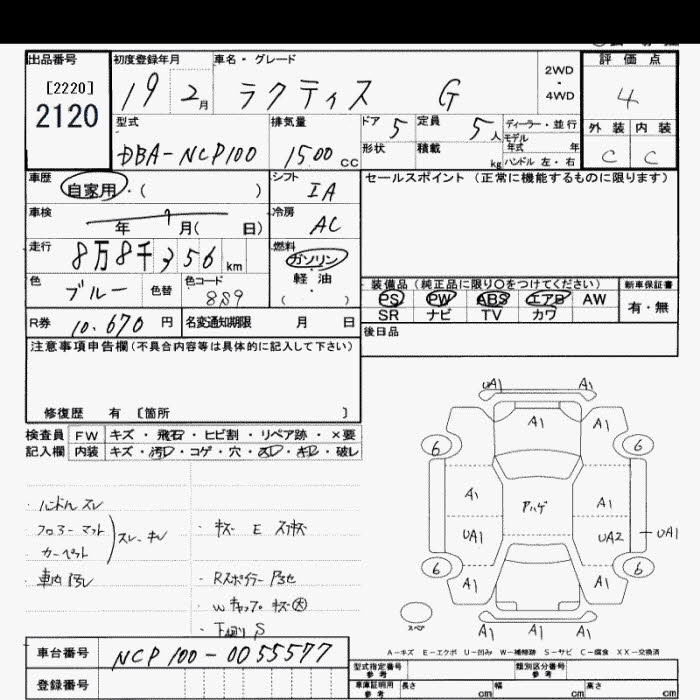 出品番号 初度登録年月 車名・グレード 2WD・4WD 評価点
[2220]
2120
19 2月 ラクティス G 4
型式 排気量 ドア 5 定員 5人 ディーラー・並行 外装 内装
モデル年式 年
DBA-NCP100 1500cc 形状 積載 kg ハンドル 左・右 C C
車歴 自家用・( ) シフト IA セールスポイント (正常に機能するものに限ります)
車検 年 月( 日) 冷房 AC
走行 8万8千356km 燃料 ガソリン
軽油
( ・ )
色 ブルー 色替 色コード 8S9
装備品(純正品に限り○をつけてください) 新車保証書
PS PW ABS エアB AW 有・無
SR ナビ TV カワ
R券 10.670円 名変通知期限 月 日 後日品
注意事項申告欄(不具合内容等は具体的に記入して下さい)
修復歴 有 〔箇所 〕
検査員 FW キズ・飛石・ヒビ割・リペア跡・×要
記入欄 内装 キズ・汚レ・コゲ・穴・スレ・キレ・破レ
・ハンドルスレ
フロアーマット
・カーペット
スレ・キレ
・車内汚レ
・キズ E スリキズ
・Rスポイラー
・Wキャップ キズ大
・下廻りS
UA1 A1
A1 A1
6 6
A1 アハゲ A1
UA1 UA2 UA1
6 6
A1 A1
スペア
A1 A1 A1
A-キズ E-エクボ U-凹み W-補修跡 S-サビ C-腐食 XX-交換済
車台番号 NCP100-0055577
登録番号
型式指定番号 参考 類別区分番号 参考
車庫証明用 参考 長さ cm 幅 cm 高さ cm